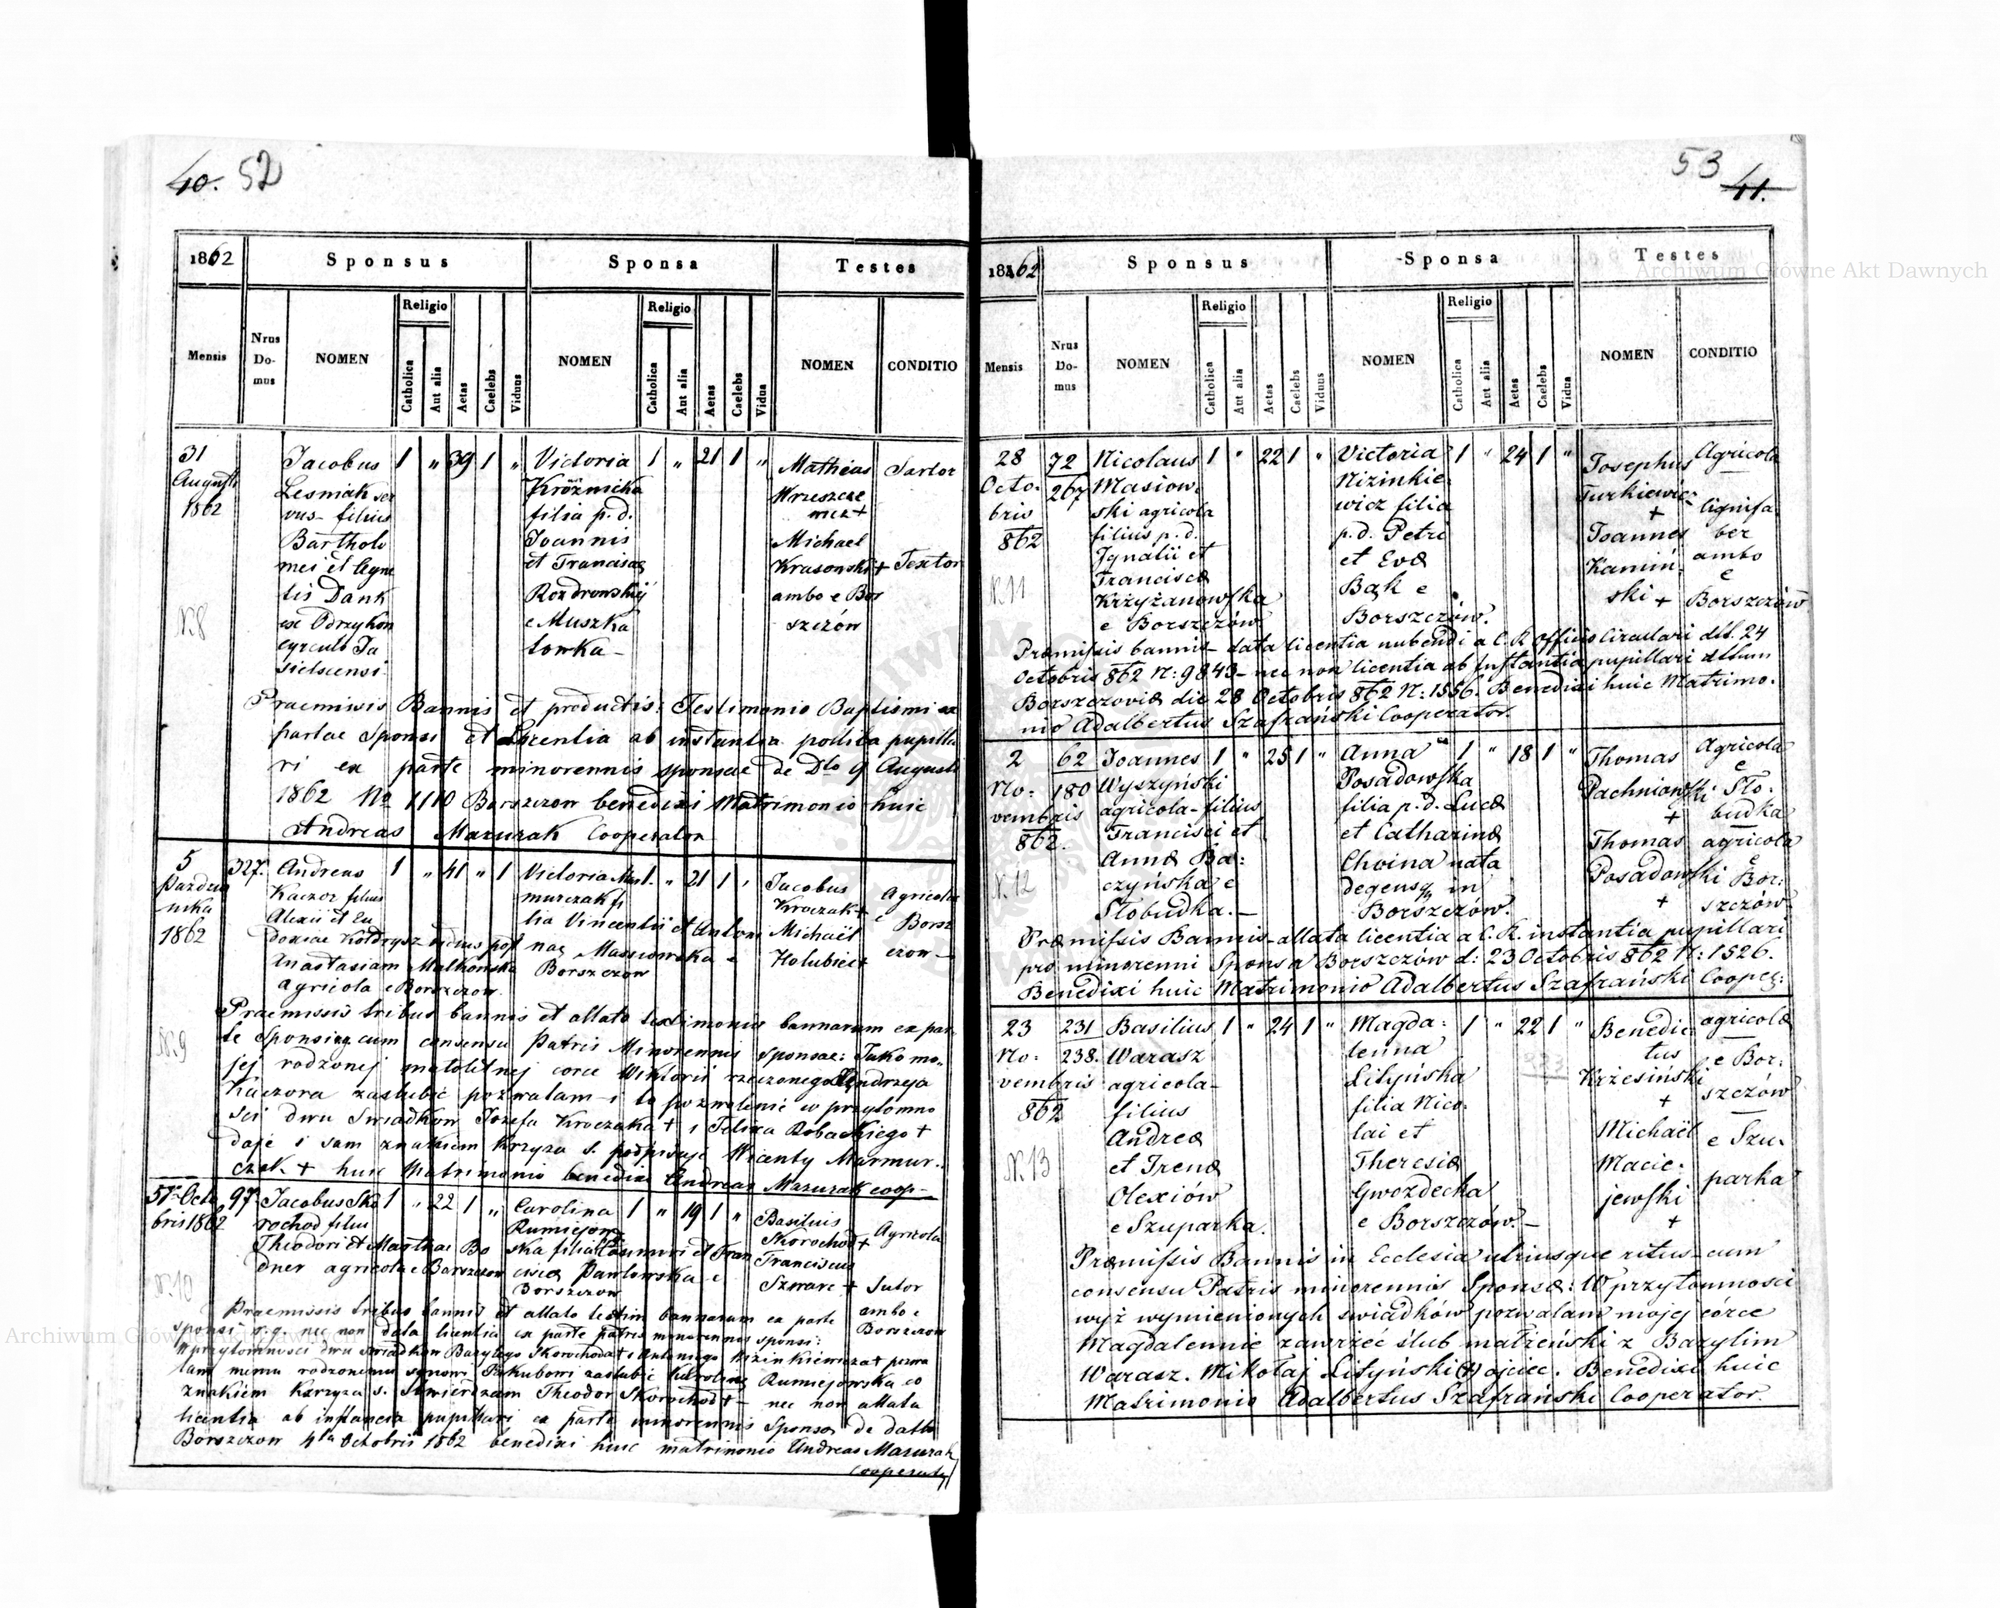 40. 52
1862
Sponsus
Sponsa
Testes
Mensis
Nrus Do- mus
NOMEN
Religio
Catholica
Aut alia
Aetas
Caelebs
Viduus
NOMEN
Religio
Catholica
Aut alia
Aetas
Caelebs
Vidua
NOMEN
CONDITIO
31
Augusti
1862
N.8
Jacobus
Lesniak ser
vus - filius
Bartholo
mei et Agne
tis Dank
ex Odrzykon
cyrculo Ja
sielscensi
1 " 39 1 "
Victoria
Kröznicka
filia p.d.
Joannis
et Franciscae
Rozdrowskij
e Muszka
towka -
1 " 21 1 "
Mathéus
Wrzeszcze
wicz +
Michael
Krasowski +
ambo e Bor
szczów
Sartor
Textor
Praemissis Bannis et productis: Testimonio Baptismi ex
partae Sponsi et Licentia ab instantia politica pupilla
ri ex parte minorennis sponsae de Dto 9 Augusti
1862 No 1110 Borszczow benedixi Matrimonio huic
Andreas Mazurak Cooperator
5
Pazdzier
nika
1862
N.9
327.
Andreas
Kaczor filius
Alexii et Eu
doxiae Kołdrysz viduus post
Anastasiam Malkonska
agricola e Borszczow
1 " 41 " 1
Victoria Mar
murczak fi
lia Vincentii et Anton
nae Massiowska -
Borszczow
1. " 21 1 "
Jacobus
Kroczak +
Michaël
Holubiec +
Agricolae
e Borsz
czow -
Praemissis tribus bannis et allato testimonio bannarum ex par
te Sponsi cum consensu Patris Minorennis Sponsae: Jako mo-
jej rodzonej małoletniej corce Wiktorii rzeczonego Andrzeja
Kaczora zaslubić pozwalam i to pozwolenie w przytomno
sci dwu Swiadkow Józefa Kroczaka + i Felixa Robackiego +
daje i sam znakiem Krzyza s. podpisuje Wicenty Marmur-
czak + huic Matrimonio benedixi Andreas Mazurak coop-
5ta Octo
bris 1862
N.10
97
Jacobus Sko
rochod filiu
Theodori et Marthae Bo
dner agricola e Borszczow
1 " 22 1 "
Carolina
Rumiejow
ska filia Casimiri et Fran
ciscae Pawlowska e
Borszczow
1 " 19 1 "
Basilius
Skorochod +
Franciscus
Szwarc +
Agricola
Sutor
ambo e
Borszczow
Praemissis tribus bannis et allato testim bannarum ex parte
sponsi r.g. nec non data licentia ex parte patris minorennis sponsi:
W przytomnosci dwu swiadkow Bazylego Skorochoda + i Antoniego Nizinkiewicza + pozwa
lam memu rodzonemu synowi Jakubowi zaslubić Karoline Rumiejowska co
znakiem Krzyza s. stwierdzam Theodor Skorochod + - nec non allata
licentia ab instancia pupillari ex parte minorennis Sponsae de datto
Borszczow 4ta Octobris 1862 benedixi huic matrimonio Andreas Mazurak
Cooperator
53 41.
1862
Sponsus
Sponsa
Testes
Mensis
Nrus Do- mus
NOMEN
Religio
Catholica
Aut alia
Aetas
Caelebs
Viduus
NOMEN
Religio
Catholica
Aut alia
Aetas
Caelebs
Vidua
NOMEN
CONDITIO
28
Octo-
bris
862
N.11
72
267
Nicolaus
Masiow-
ski agricola
filius p.d.
Ignatii et
Franciscæ
Krzyżanowska
e Borszczów
1 " 22 1 "
Victoria
Nizinkie-
wicz filia
p.d. Petri
et Evæ
Bąk e
Borszczów.
1 " 24 1 "
Josephus
Turkiewicz
+
Joannes
Kamiń-
ski +
Agricola
lignifa
ber
ambo
e
Borszczów
Præmissis bannis - data licentia nubendi a C.R. officio Circulari dtt. 24
Octobris 862 N: 9843 - nec non licentia ab Instantia pupillari dttum
Borszczoviæ die 28 Octobris 862 N: 1556. Benedixi huic Matrimo-
nio Adalbertus Szafrański Cooperator.
2
No-
vembris
862.
N.12
62
180
Joannes
Wyszyński
agricola - filius
Francisci et
Annæ Ba-
czyńska e
Słobudka. -
1 " 25 1 "
Anna
Posadowska
filia p.d. Lucæ
et Catharinæ
Choina nata
degensq. in
Borszczów.
1 " 18 1 "
Thomas
Pachniowski
+
Thomas
Posadowski
+
Agricola
e
Sło-
budka
agricola
e
Bor-
szczów
Præmissis Bannis - allata licentia a C.R. instantia pupillari
pro minorenni Sponsa Borszczów d: 23 Octobris 862 N: 1526.
Benedixi huic Matrimonio Adalbertus Szafrański Cooper:
23
No-
vembris
862
N.13
231
238.
Basilius
Warasz
agricola -
filius
Andreæ
et Irenæ
Olexiów
e Szuparka.
1 " 24 1 "
Magda-
lenna
Lityńska
filia Nico-
lai et
Theresiæ
Gwozdecka
e Borszczów. -
1 " 22 1 "
Benedic
tus
Krzesiński
+
Michaël
Macie-
jewski
+
agricolæ
e Bor-
szczów
e Szu-
parka
Præmissis Bannis in Ecclesia utriusque ritus - cum
consensu Patris minorennis Sponsæ: W przytomnosci
wyż wymienionych swiadków pozwalam mojej córce
Magdalennie zawrzeć ślub małżeński z Bazylim
Warasz. Mikołaj Lityński (+) ojciec. Benedixi huic
Matrimonio Adalbertus Szafrański Cooperator.
Archiwum Główne Akt Dawnych
Archiwum Główne Akt Dawnych